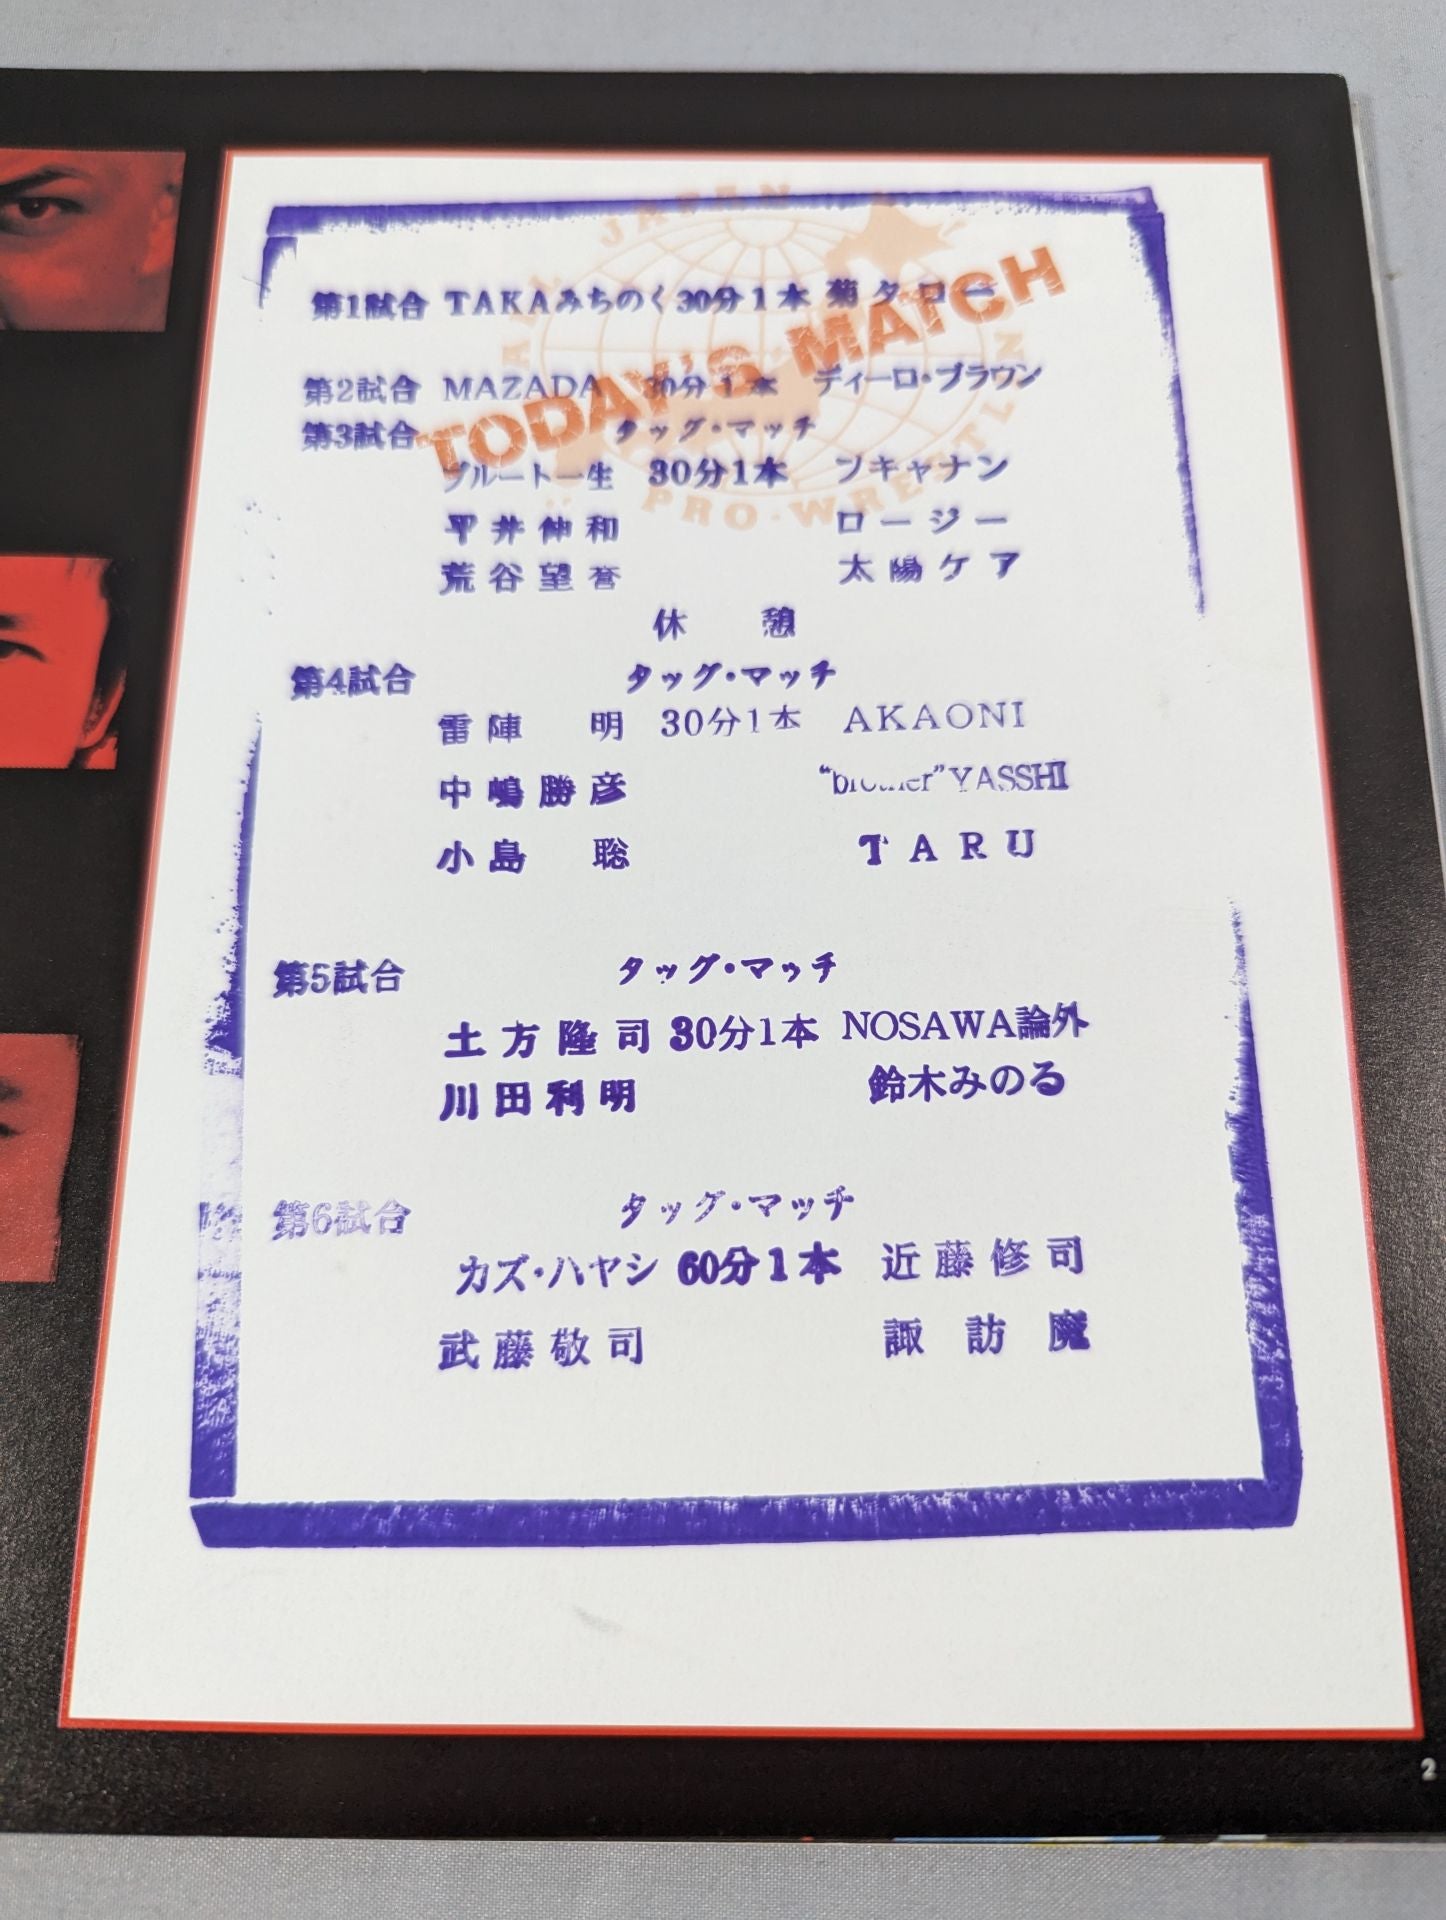 ALL JAPAN
PRO-WRESTLING
TODAY'S MATCH
第1試合 TAKAみちのく 30分1本 菊タロー
第2試合 MAZADA 30分1本 ディーロ・ブラウン
第3試合 タッグ・マッチ
ブルート一生 30分1本 ブキャナン
平井伸和 ロージー
荒谷望誉 太陽ケア
休憩
第4試合 タッグ・マッチ
雷陣 明 30分1本 AKAONI
中嶋勝彦 “brother”YASSHI
小島 聡 TARU
第5試合 タッグ・マッチ
土方隆司 30分1本 NOSAWA論外
川田利明 鈴木みのる
第6試合 タッグ・マッチ
カズ・ハヤシ 60分1本 近藤修司
武藤敬司 諏訪魔
2